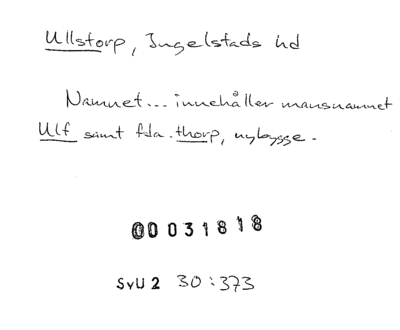 Ullstorp, Ingelstads hd
Namnet... innehåller mansnamnet
Ulf samt fda. thorp, nybygge.
00031818
SvU 2 30:373